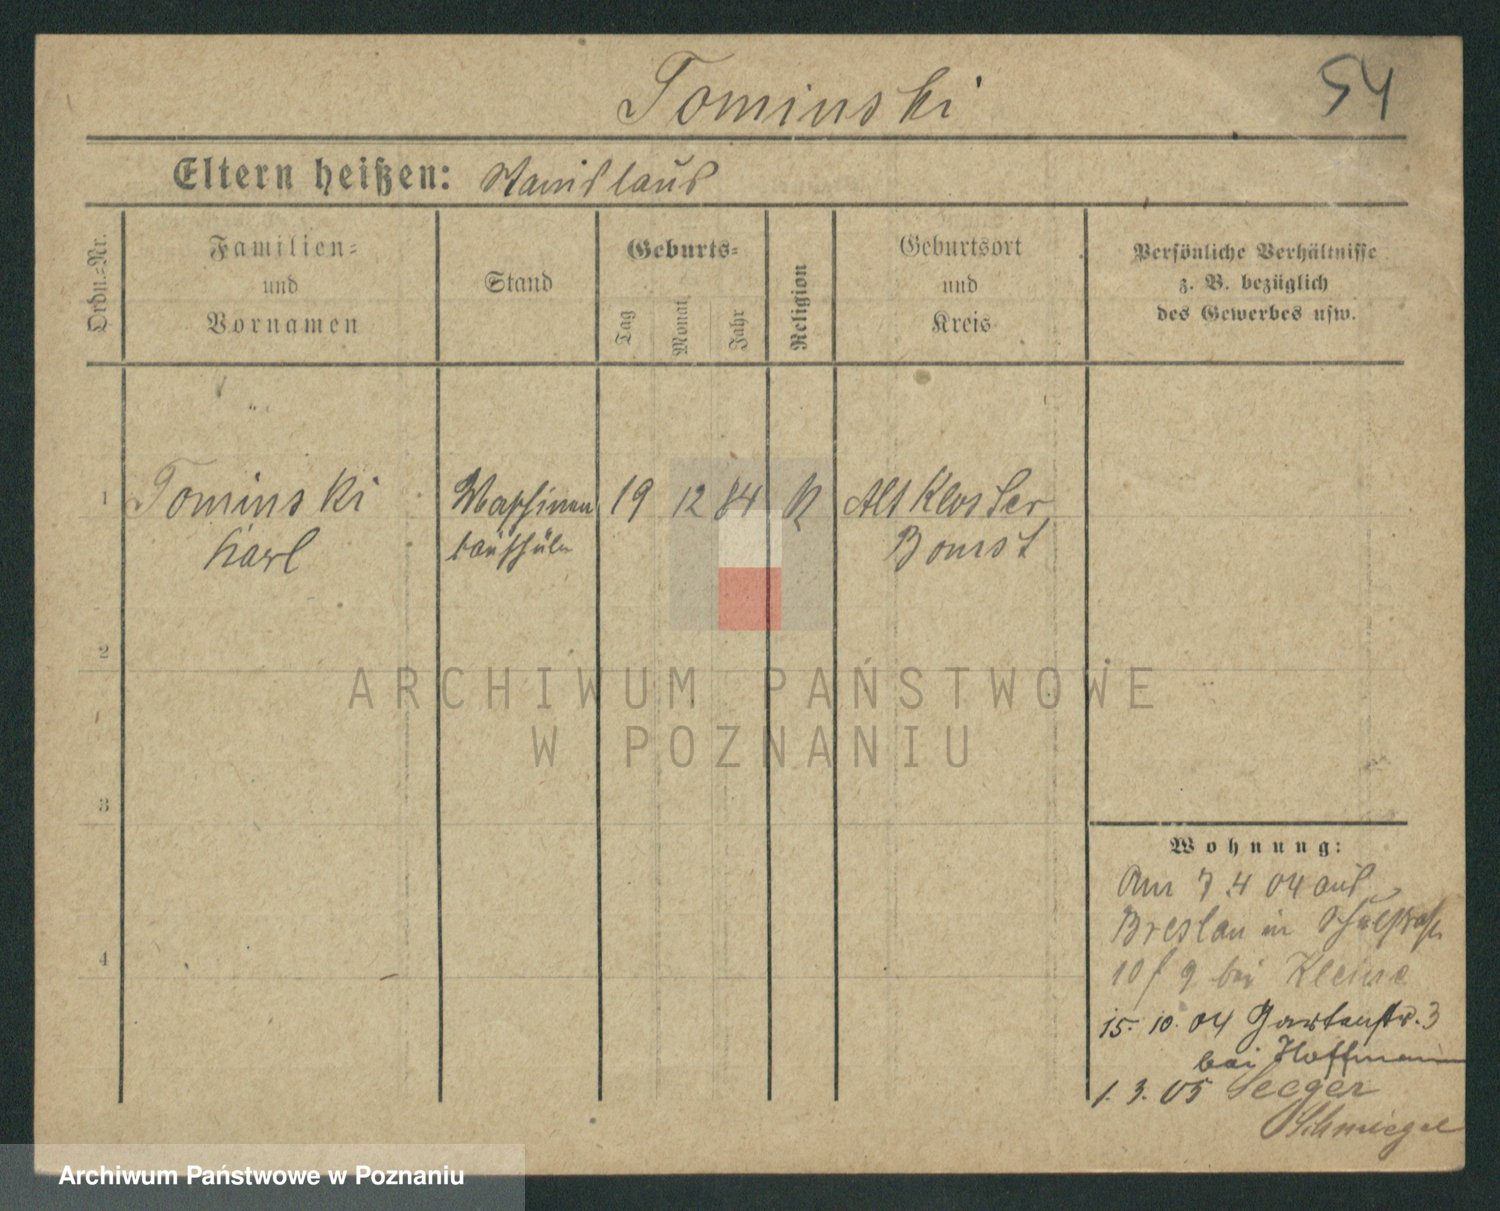 Tominski
54
Eltern heißen: Stanislaus
Ordn.=Nr.
Familien=
und
Vornamen
Stand
Geburts=
Tag
Monat
Jahr
Religion
Geburtsort
und
Kreis
Persönliche Verhältnisse
z. B. bezüglich
des Gewerbes usw.
1 Tominski Maschinen 19 12 84 Alt Kloster
Karl bauschüler Bomst
2
3
4
ARCHIWUM PAŃSTWOWE
W POZNANIU
Wohnung:
Am 7.4 04 aus
Breslau in
10/9 bei Kleine
15. 10. 04 Gartenstr. 3
bei Hoffmann
1. 3. 05 Seeger
Schmiegel
Archiwum Państwowe w Poznaniu